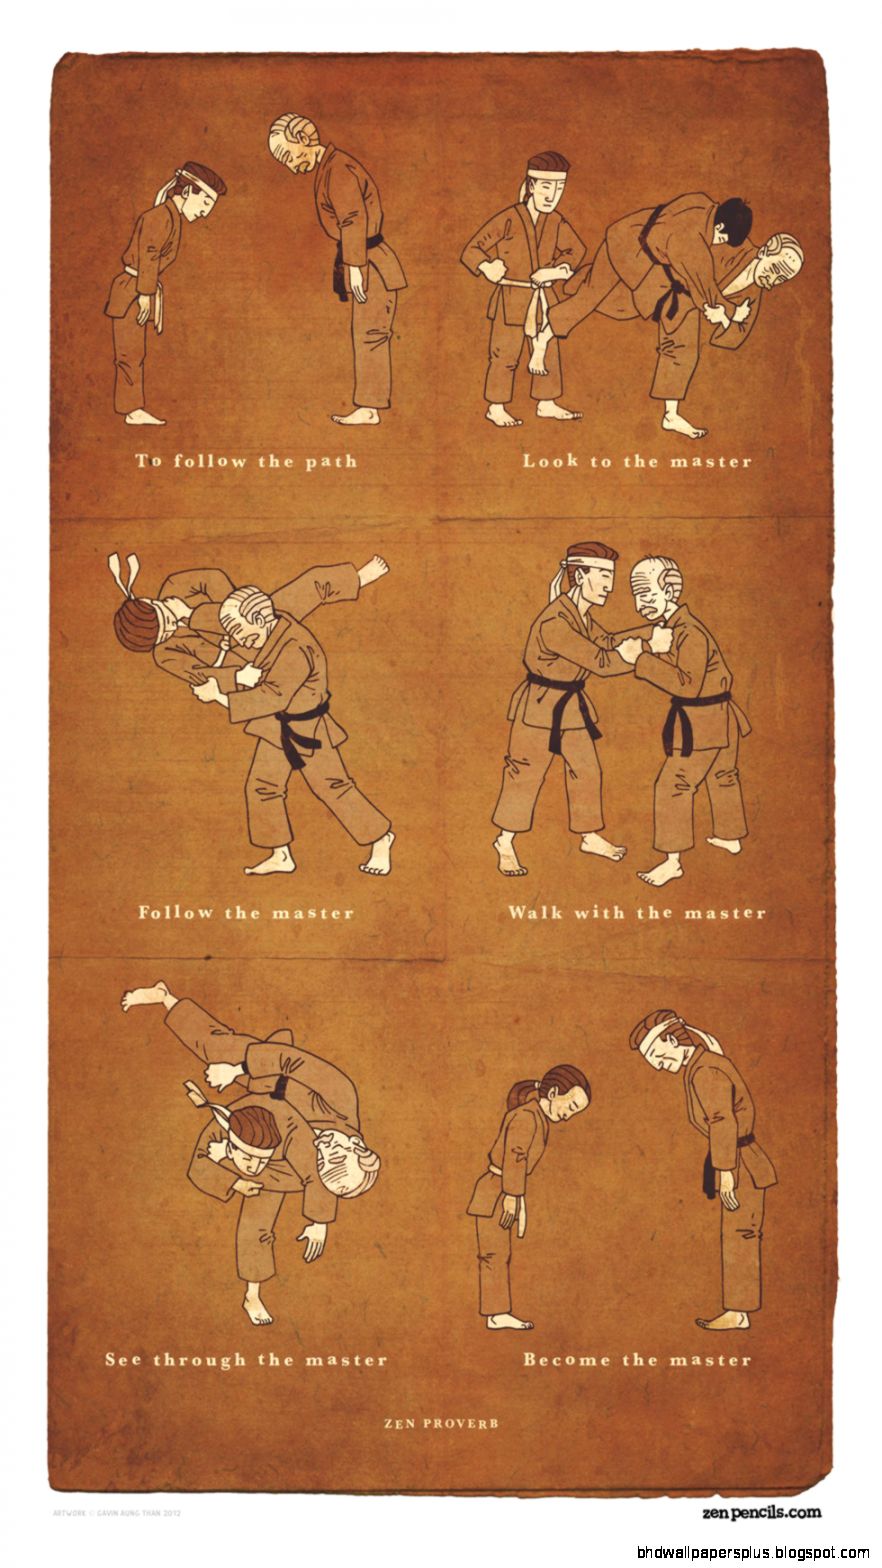 To follow the path
Look to the master
Follow the master
Walk with the master
See through the master
Become the master
ZEN PROVERB
ARTWORK © GAVIN AUNG THAN 2012
zenpencils.com
bhdwallpapersplus.blogspot.com